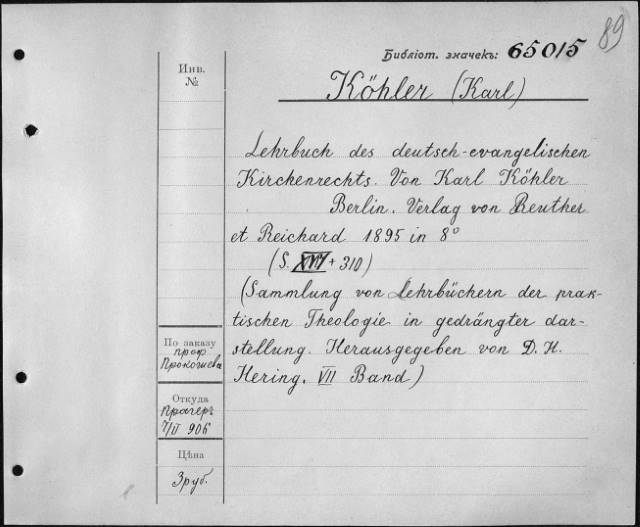 89
Библіот. значекъ: 65015
Инв.
№
Köhler (Karl)
Lehrbuch des deutsch-evangelischen
Kirchenrechts. Von Karl Köhler
Berlin. Verlag von Reuther
et Reichard 1895 in 8°
(S. + 310)
(Sammlung von Lehrbüchern der prak-
tischen Theologie in gedrängter dar-
stellung. Herausgegeben von D. H.
Hering. VII Band)
По заказу
проф.
Прокошева
Откуда
Прагеръ
7/II 906
Цѣна
3 руб.